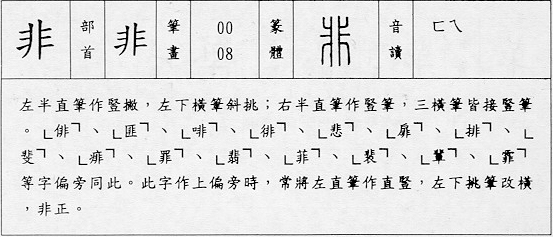 非 部首 非 筆畫 00 08 篆體 非 音讀 ㄈㄟ
左半直筆作豎撇，左下橫筆斜挑；右半直筆作豎筆，三橫筆皆接豎筆
。「俳」、「匪」、「啡」、「徘」、「悲」、「扉」、「排」、
「斐」、「痱」、「罪」、「翡」、「菲」、「裴」、「輩」、「霏」
等字偏旁同此。此字作上偏旁時，常將左直筆作直豎，左下挑筆改橫
，非正。